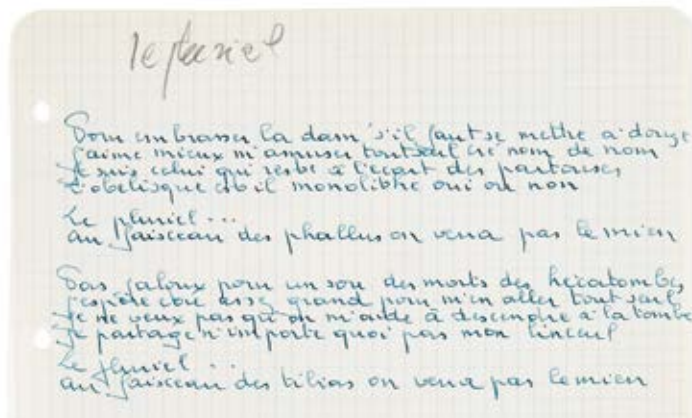 le pluriel
Pour embrasser la dam' s'il faut se mettre a douze
J'aime mieux m'amuser tout seul cré nom de nom
Je suis celui qui reste a l'ecart des partouses
L'obelisque est il monolithe oui ou non
Le pluriel...
au faisceau des phallus on verra pas le mien
Pas jaloux pour un sou des morts des hecatombes
J'espère être assez grand pour m'en aller tout seul
Je ne veux pas qu'on m'aide à descendre à la tombe
Je partage n'importe quoi pas mon linceul
Le pluriel...
au faisceau des tibias on verra pas le mien